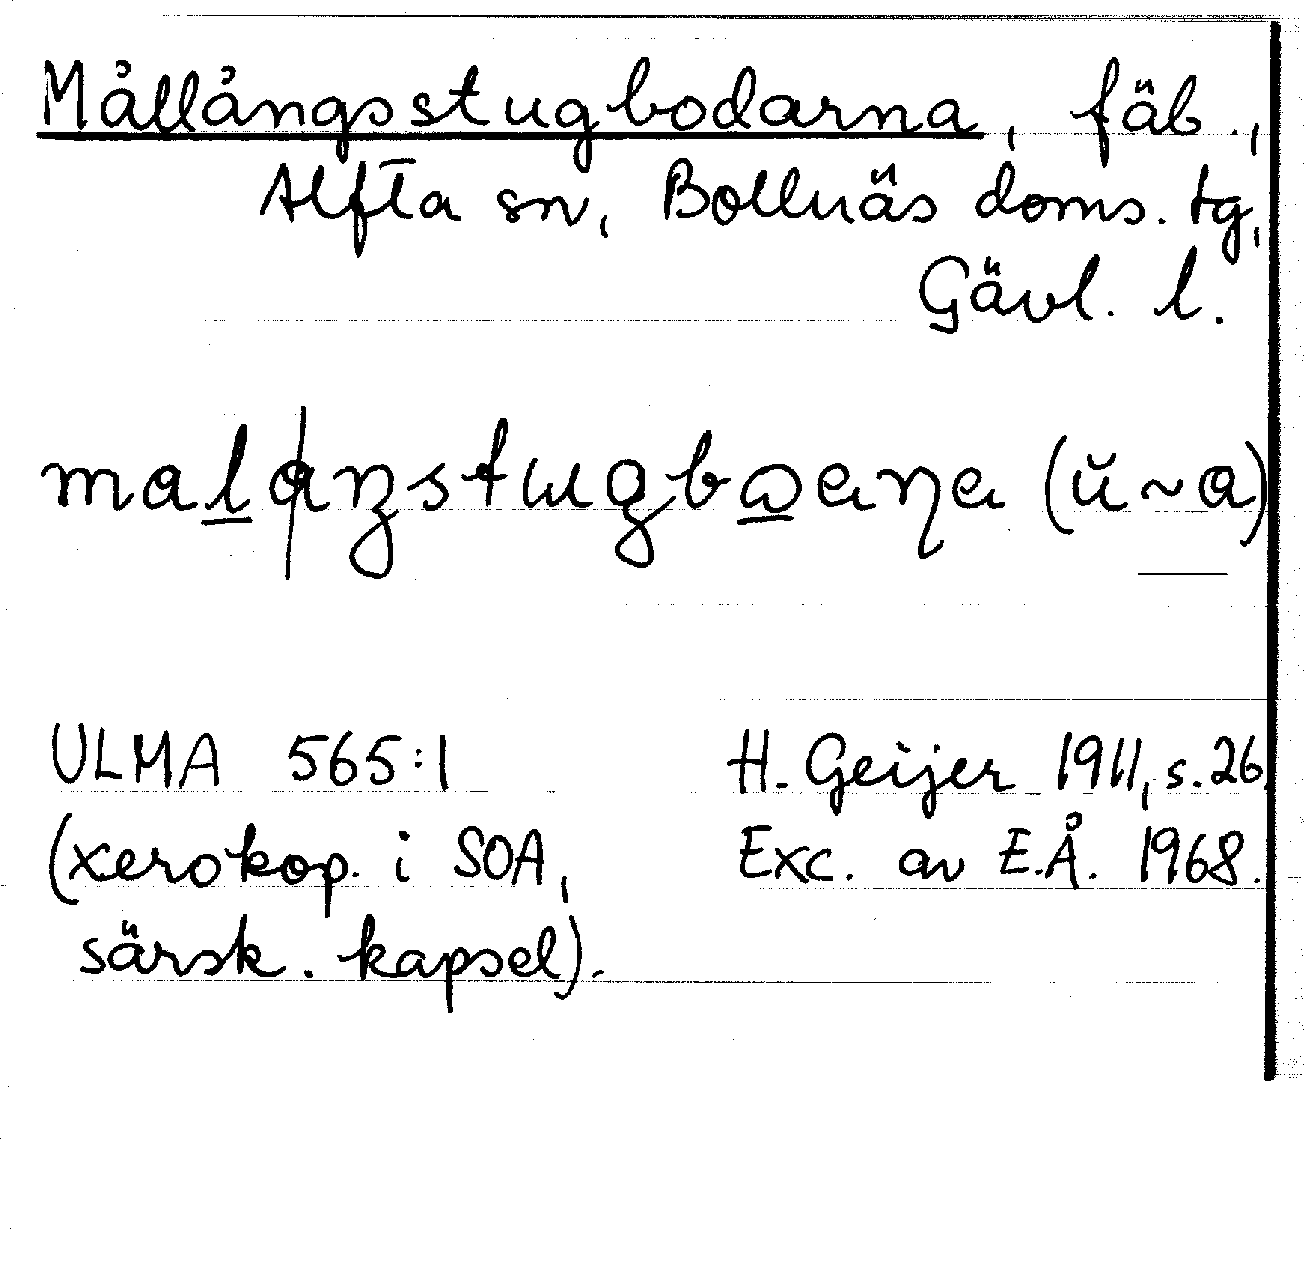 Mållångsstugbodarna, fäb.,
Alfta sn, Bollnäs doms. tg,
Gävl. l.
ULMA 565:1
H. Geijer 1911, s. 26.
(xerokop. i SOA,
Exc. av E.Å. 1968.
särsk. kapsel).